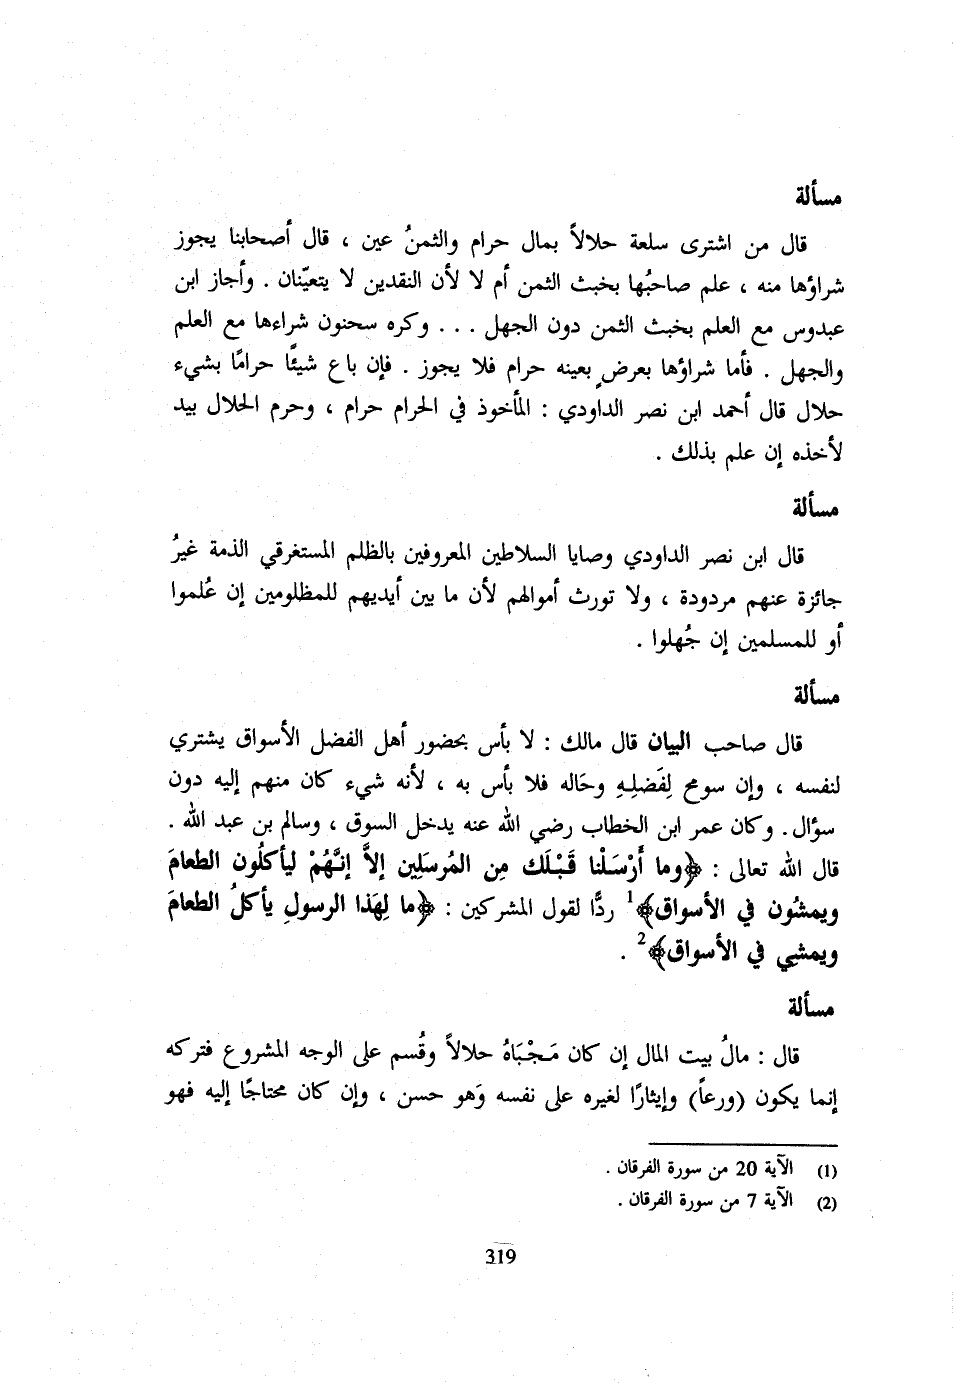 مسألة
قال من اشترى سلعة حلالاً بمال حرام والثمنُ عين ، قال أصحابنا يجوز
شراؤها منه ، علم صاحبُها بخبث الثمن أم لا لأن النقدين لا يتعيّنان . وأجاز ابن
عبدوس مع العلم بخبث الثمن دون الجهل . . . وكره سحنون شراءها مع العلم
والجهل . فأما شراؤها بعرضٍ بعينه حرام فلا يجوز . فإن باع شيئًا حرامًا بشيء
حلال قال أحمد ابن نصر الداودي : المأخوذ في الحرام حرام ، وحرم الحلال بيد
لأخذه إن علم بذلك .
مسألة
قال ابن نصر الداودي وصايا السلاطين المعروفين بالظلم المستغرقي الذمة غيرُ
جائزة عنهم مردودة ، ولا تورث أموالهم لأن ما بين أيديهم للمظلومين إن عُلموا
أو للمسلمين إن جُهلوا .
مسألة
قال صاحب البيان قال مالك : لا بأس بحضور أهل الفضل الأسواق يشتري
لنفسه ، وإن سومح لِفَضلِهِ وحَاله فلا بأس به ، لأنه شيء كان منهم إليه دون
سؤال. وكان عمر ابن الخطاب رضي الله عنه يدخل السوق ، وسالم بن عبد الله .
قال الله تعالى : ﴿وما أَرْسَلْنا قَبْلَك مِن المُرسَلِين إلاَّ إنَّهُمْ ليأكلُون الطعامَ
ويمشُون في الأسواق﴾1 ردًّا لقول المشركين : ﴿ما لِهَذا الرسولِ يأكلُ الطعامَ
ويمشِي في الأسواق﴾2 .
مسألة
قال : مالُ بيت المال إن كان مَجْبَاهُ حلالاً وقُسم على الوجه المشروع فتركه
إنما يكون (ورعاً) وإيثارًا لغيره على نفسه وَهو حسن ، وإن كان محتاجًا إليه فهو
(1) الآية 20 من سورة الفرقان .
(2) الآية 7 من سورة الفرقان .
319